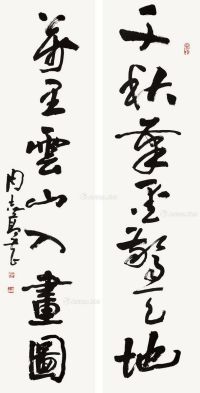 千秋笔墨惊天地
萬里雲山入畫圖
周志高